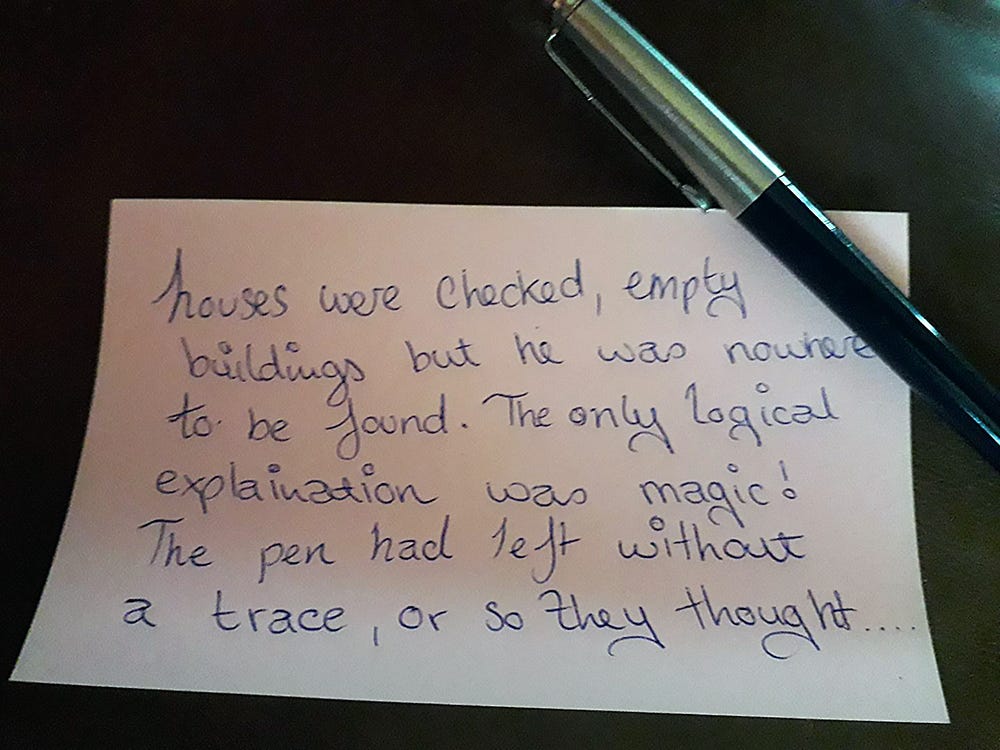 houses were checked, empty
buildings but he was nowhere
to be found. The only logical
explaination was magic!
The pen had left without
a trace, or so they thought....